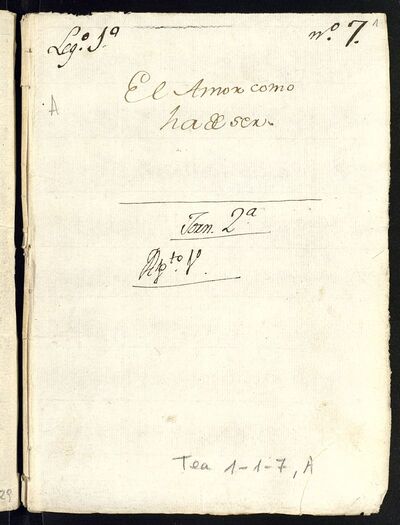 Leg.o 1.o
n.o 7.
1
A
El Amor como
ha de ser.
Jorn. 2.a
Ap.to 1.o
Tea 1-1-7, A
29